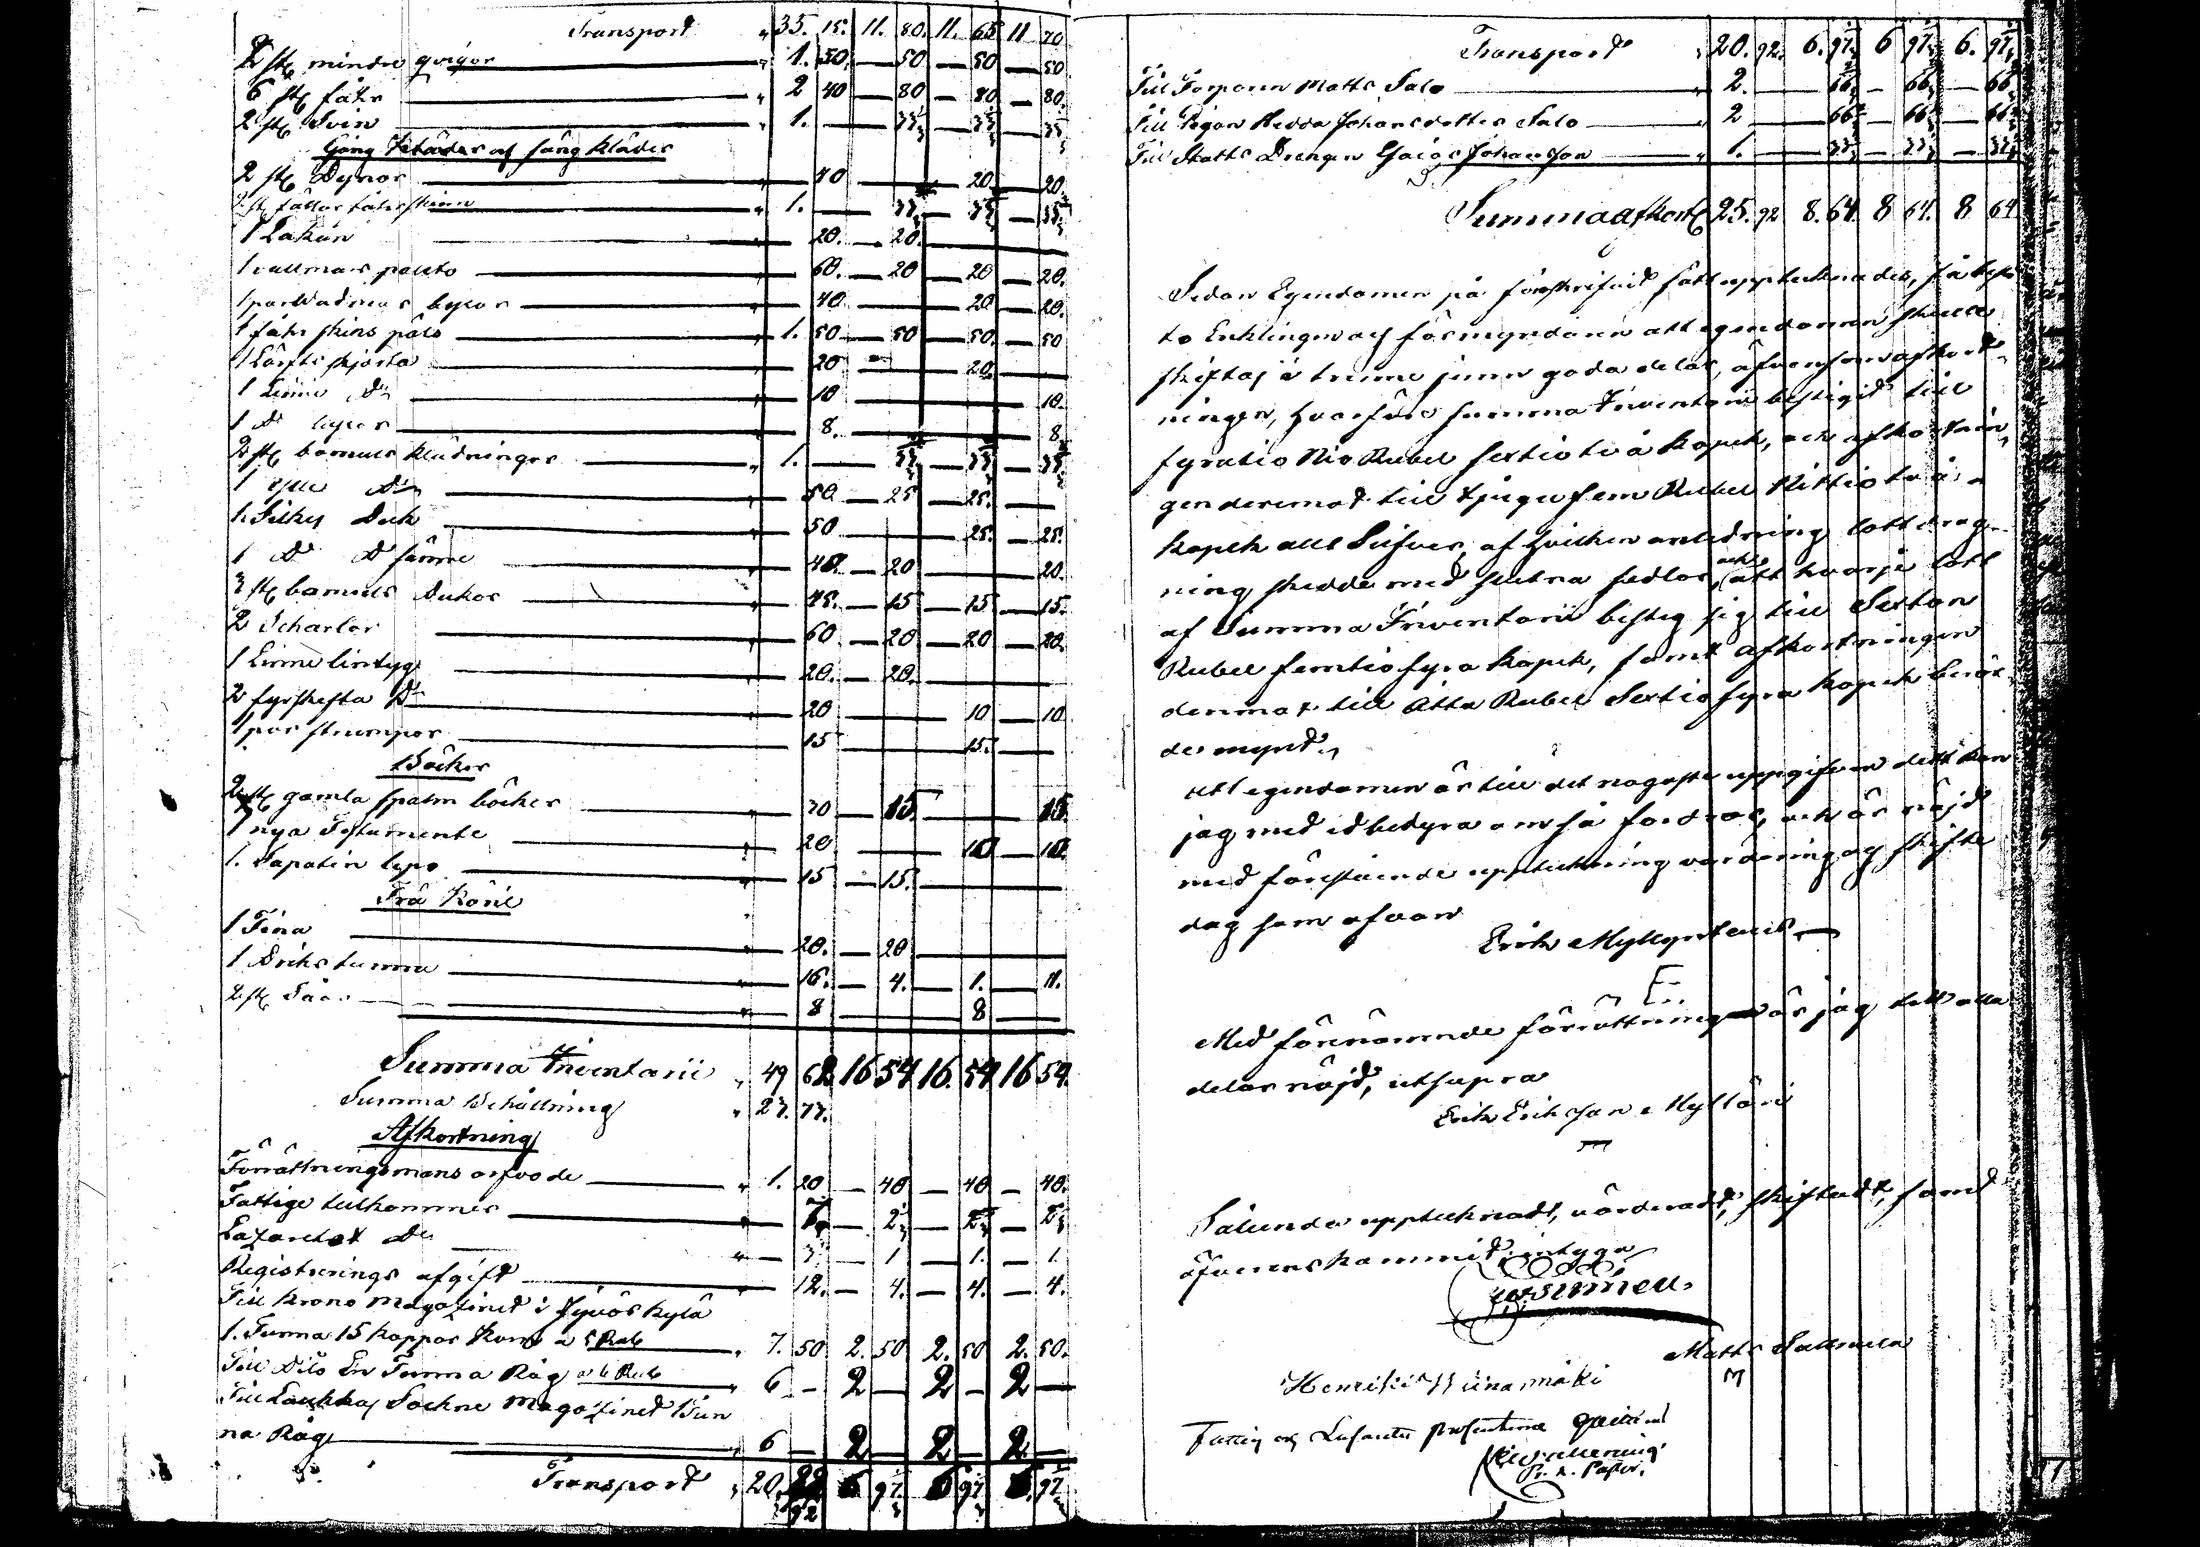 Transport " 33. 15. 11. 80. 11. 65 11 70
2 st mindre qvigor " 1. 50. — 50 — 50 — 50
6 st fåhr " 2 40 — 80 — 80 — 80.
2 st Svin " 1. — 33⅓ — 33⅓ — 33⅓
Gång Kläder och Sängkläder
2 st Dynor " 40 — 20. — 20.
fällar fåhrskinn " 1. — 33⅓ — 33⅓ — 33⅓
1 Lakan " 20. — 20.
1 vallmars palto " 60. — 20 — 20 — 20.
1 par Wadmars byxor " 40. — 20 — 20.
1 fåhr skins päls " 1. 50 — 50 — 50. — 50
1 Lärfts skjorta " 20 — 20.
1 Linne Do " 10 — 10.
1 Do byxor " 8. — 8
2 st bomuls klädningar " 1. — 33⅓ — 33⅓ — 33⅓
1 ylle Do " 50 — 25 — 25.
1 Silkes Duk " 50 — 25. — 25.
1 Do Do sämre " 40. — 20 — 20.
3 st bomuls Dukar " 45. — 15 — 15 — 15.
2 Scharlar " 60 — 20 — 20 — 20.
1 Linne lintyg " 20. — 20.
2 fyrskefta Do " 20 — 10 — 10.
1 par strumpor " 15 — 15.
Böcker
2 st gamla psalm böcker " 30 — 15. — 15.
1 nya Testamente " 20. — 10 — 10.
1. Sapatin lepo " 15 — 15.
Trä Käril
1 Tina " 20. — 20
1 Drickstunna " 16. — 4. — 1. — 11.
2 st Såar " 8 — 8
Summa Inventarii " 49 62 16 54 16. 54 16 54.
Summa Behållning " 23. 77.
Afkortning
Förrättningsmans arfvode " 1. 20 — 40 — 40 — 40.
Fattige tillkommer " 7. — 2⅓ — 2⅓ — 2⅓
Lazarettet Do " 3 — 1 — 1. — 1.
Registrerings afgift " 12. — 4. — 4. — 4.
Till Krono Magazinet i Jyväskylä
1. Tunna 15 kappar Korn a 5 Rub " 7. 50 2. 50 2. 50 2. 50.
Till Dito En Tunna Råg a 6 Rub " 6 — 2 — 2 — 2 —
Till Laukkas Sockne Magazinet 1 Tun
na Råg " 6 — 2 — 2 — 2 —
Transport " 20. 92 6 97⅓ 6 97⅓ 6. 97⅓
Transport " 20. 92. 6. 97⅓ 6 97⅓ 6. 97⅓
Till Torparen Matts Salo " 2. — 66⅔ — 66⅔ — 66⅔
Till Pigan Hedda Johansdotter Salo " 2 — 66⅔ — 66⅔ — 66⅔
Till Statts Drengen Johansson " 1. — 33⅓ — 33⅓ — 33⅓
Summa afkort 25. 92 8. 64. 8 64. 8 64
Sedan Egendomen på förskrifvit sätt upptecknades, så
to Enklingen och förmyndaren att egendomen skulle
skiftas i trenne jemn goda delar, äfvensom afkort-
ningen, hvarföre Summa Inventarii bestigit till
fyratio Nio Rubel sextiotvå kopek, och afkortnin-
gen deremot till tjugufem Rubel Nittiotvå
kopek allt Silfver, af hvilken anledning lottdrag-
ning skedde med slutna sedlar, och att hvarje lott
af Summa Inventarii besteg sig till Sexton
Rubel femtiofyra kopek, samt afkortningen
deremot till Åtta Rubel Sextiofyra kopek berör-
de mynt.
Att egendomen är till det nogaste uppgifven dett kan
jag med ed betyra om så fordras, och är nöjd
med förestående uppteckning värdering och skifte
dag som ofvan
Erik Myllyn
E.
Med förenämnde förrättning är jag till alla
delar nöjd, utsupra
Erik Eriksson Mylläri
Sålunda upptecknadt, värderadt, skiftadt, samt
öfverenskommit intyga
Matts
M
Henriki Niinamäki
Fattig och Lasaretts procenterna